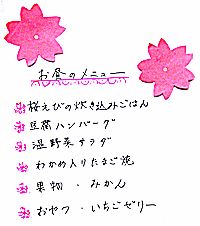 お昼のメニュー
桜えびの炊き込みごはん
豆腐ハンバーグ
温野菜サラダ
わかめ入りたまご焼
果物・みかん
おやつ・いちごゼリー